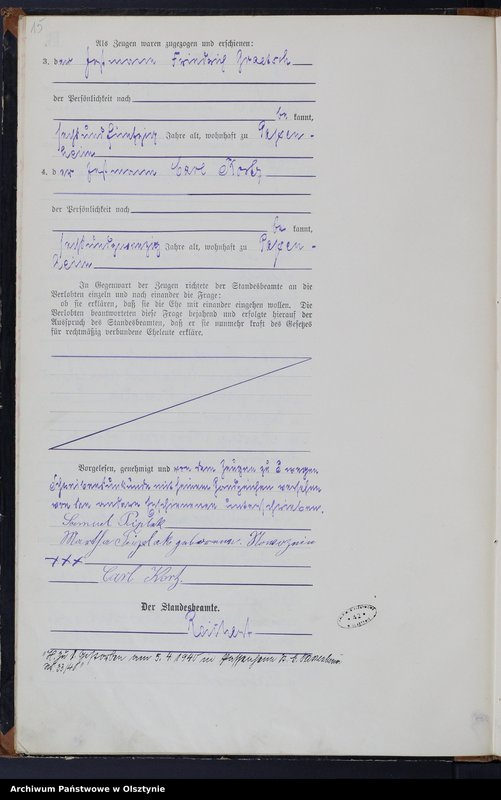 15
Als Zeugen waren zugezogen und erschienen:
3. der Hofmann Friedrich Graetsch
der Persönlichkeit nach
be kannt,
sechsundfünfzig Jahre alt, wohnhaft zu
4. der Hofmann Carl Kortz
der Persönlichkeit nach
be kannt,
sechsundzwanzig Jahre alt, wohnhaft zu
In Gegenwart der Zeugen richtete der Standesbeamte an die
Verlobten einzeln und nach einander die Frage:
ob sie erklären, daß sie die Ehe mit einander eingehen wollen. Die
Verlobten beantworteten diese Frage bejahend und erfolgte hierauf der
Ausspruch des Standesbeamten, daß er sie nunmehr kraft des Gesetzes
für rechtmäßig verbundene Eheleute erkläre.
Vorgelesen, genehmigt und von dem Zeugen zu 3 wegen
Schreibensunkunde mit seinem Handzeichen versehen
von den anderen Erschienenen unterschrieben.
Samuel
Martha geborene
+++
Carl Kortz
Der Standesbeamte.
Reichert
42
gestorben am 5. 4. 1945 in
Archiwum Państwowe w Olsztynie